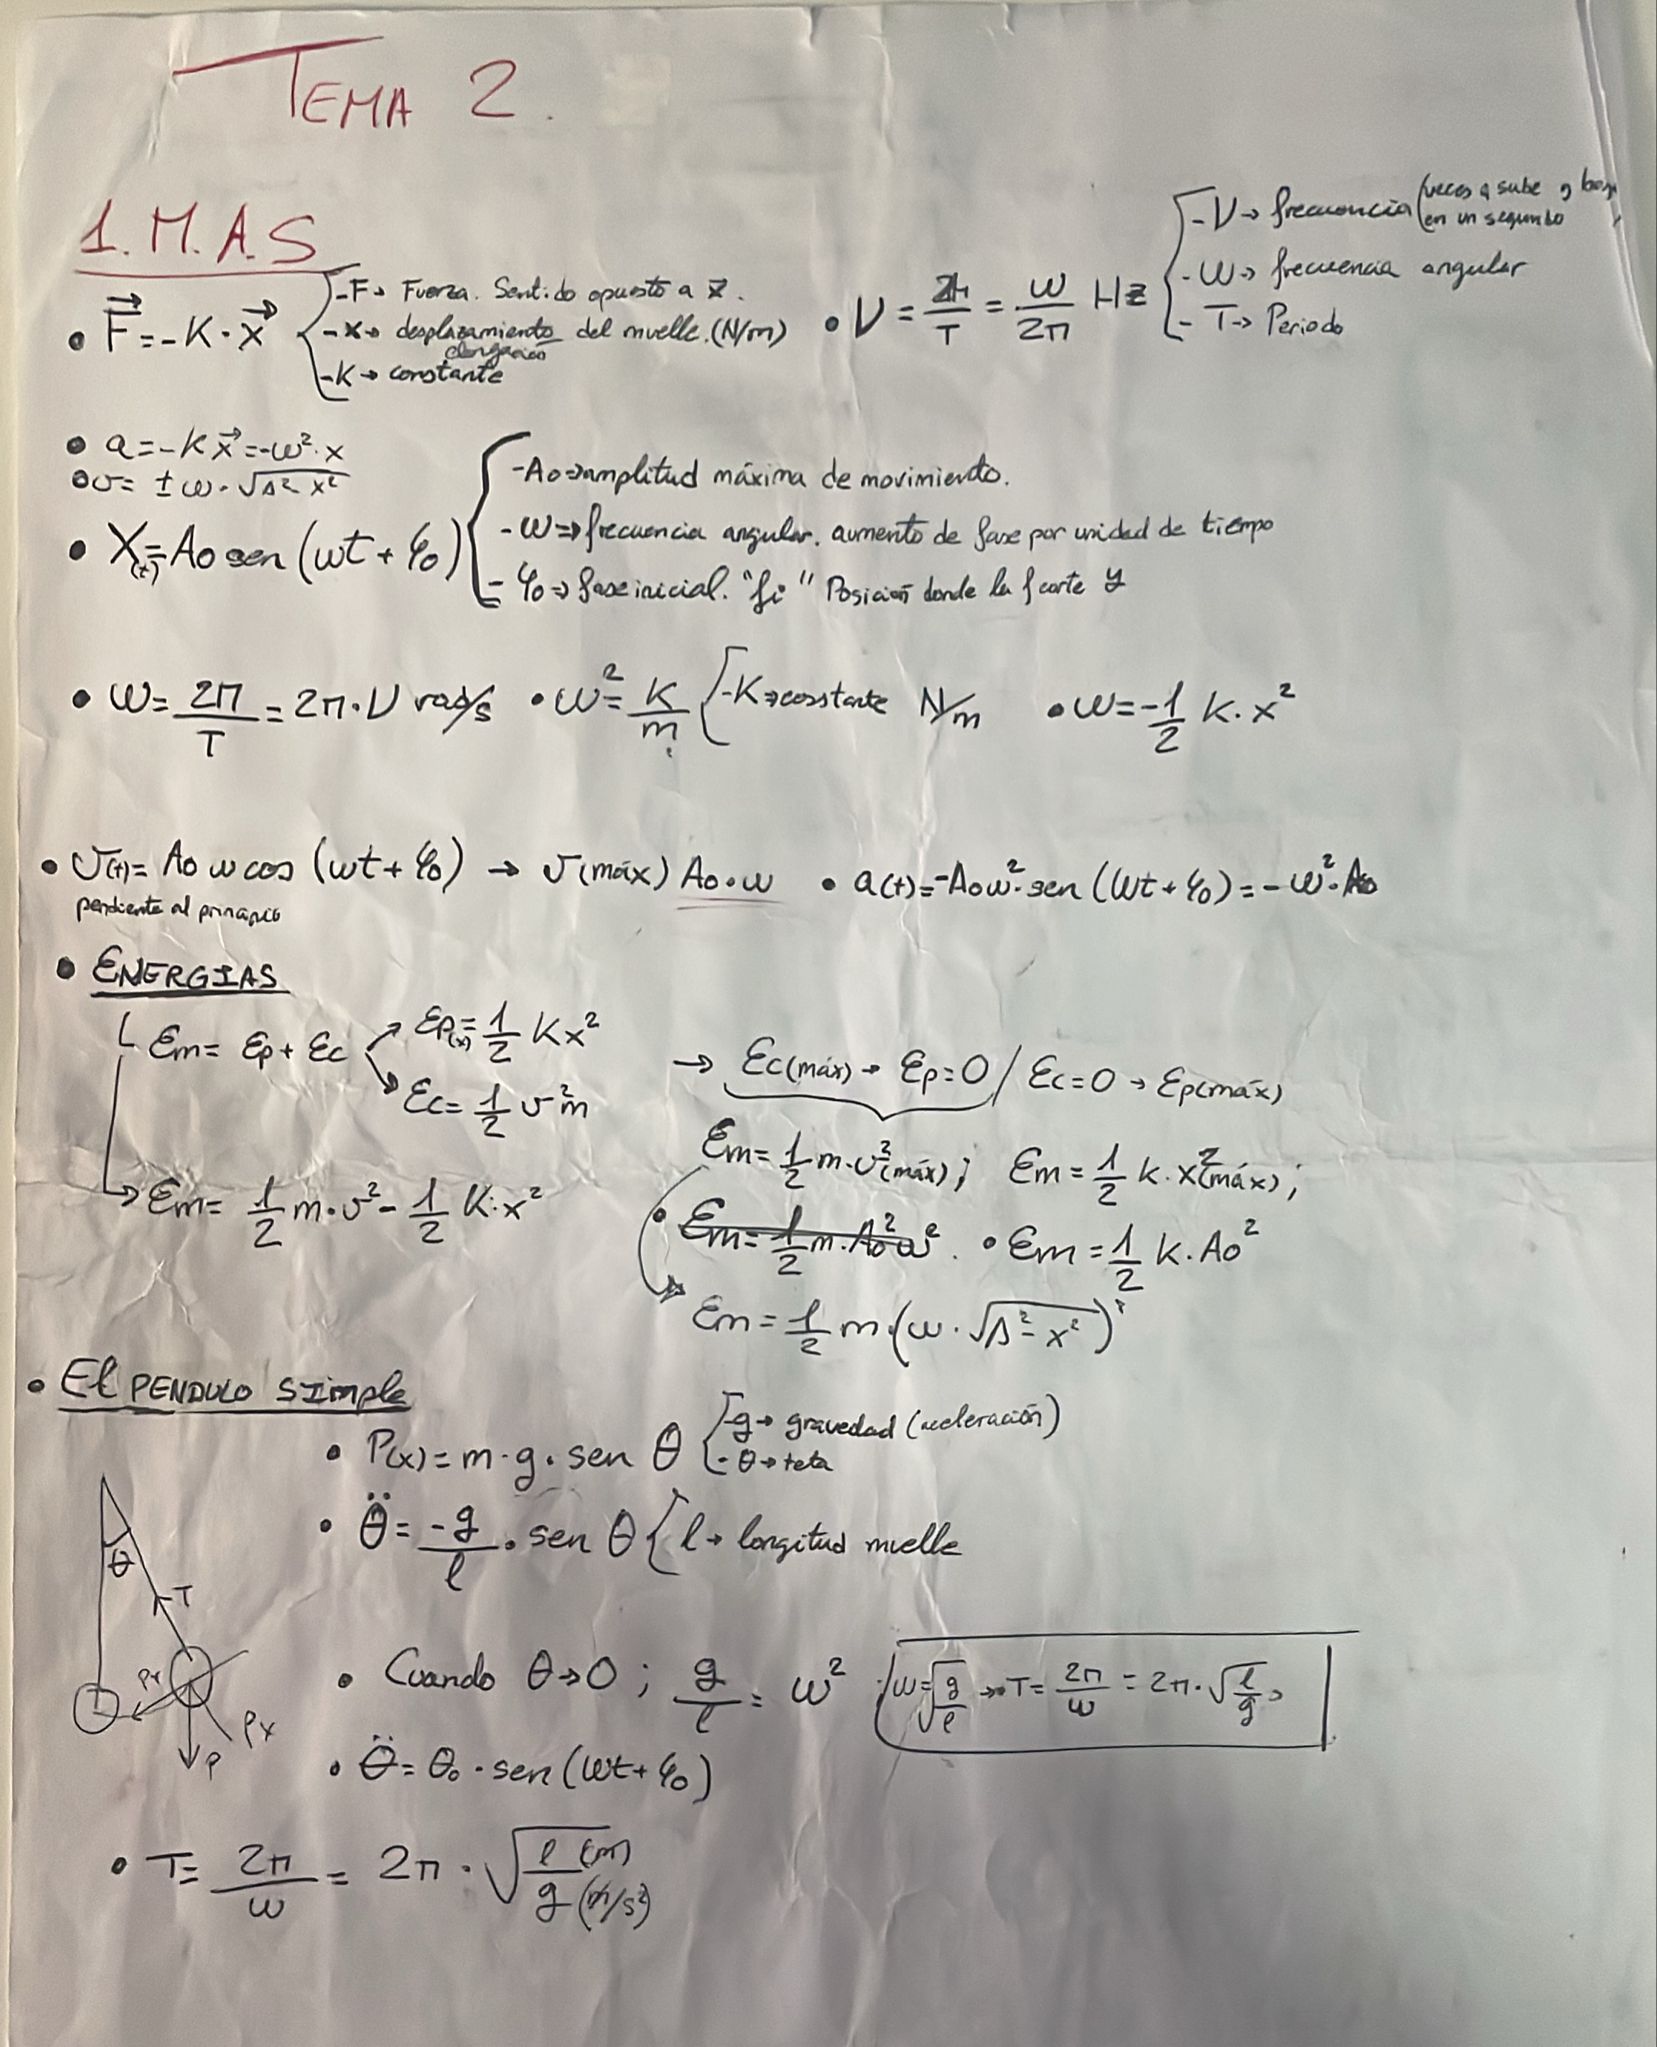 TEMA 2.
1. M.A.S
• F = -K · x
-F → Fuerza. Sentido opuesto a x.
-x → desplazamiento del muelle. (N/m)
elongación
-K → constante
• ν = 1/T = ω/2π Hz
-ν → frecuencia (veces q sube y baja
en un segundo
-ω → frecuencia angular
- T → Periodo
• a = -K x = -ω² · x
• v = ± ω · √A² x²
• X(t) = Ao sen (ωt + φo)
-Ao → amplitud máxima de movimiento.
-ω => frecuencia angular. aumento de fase por unidad de tiempo
- φo => fase inicial. "fi" Posición donde la f corte y
• ω = 2π/T = 2π · ν rad/s • ω² = K/m -K → constante N/m • ω = -1/2 K · x²
• v(t) = Ao ω cos (ωt + φo) → v(máx) Ao · ω • a(t) = -Aoω² · sen (ωt + φo) = -ω² · Ao
pendiente al principio
• ENERGIAS
Em = Ep + Ec
Ep(x) = 1/2 K x²
Ec = 1/2 v² m
→ Ec(máx) → Ep = 0 / Ec = 0 → Ep(máx)
Em = 1/2 m · v²(máx) ; Em = 1/2 k · x²(máx) ;
→ Em = 1/2 m · v² - 1/2 K · x²
• Em = 1/2 m · Ao² ω² . • Em = 1/2 k · Ao²
Em = 1/2 m · (ω · √A² - x²)²
• El PENDULO SIMple
• P(x) = m · g · sen θ
-g → gravedad (aceleración)
- θ → teta
• θ̈ = -g/l · sen θ { l → longitud muelle
θ
T
Px
P
• Cuando θ → 0 ; g/l = ω² ω = √g/l → T = 2π/ω = 2π · √l/g
• θ̈ = θo · sen (ωt + φo)
• T = 2π/ω = 2π · √l (m)/g (m/s²)